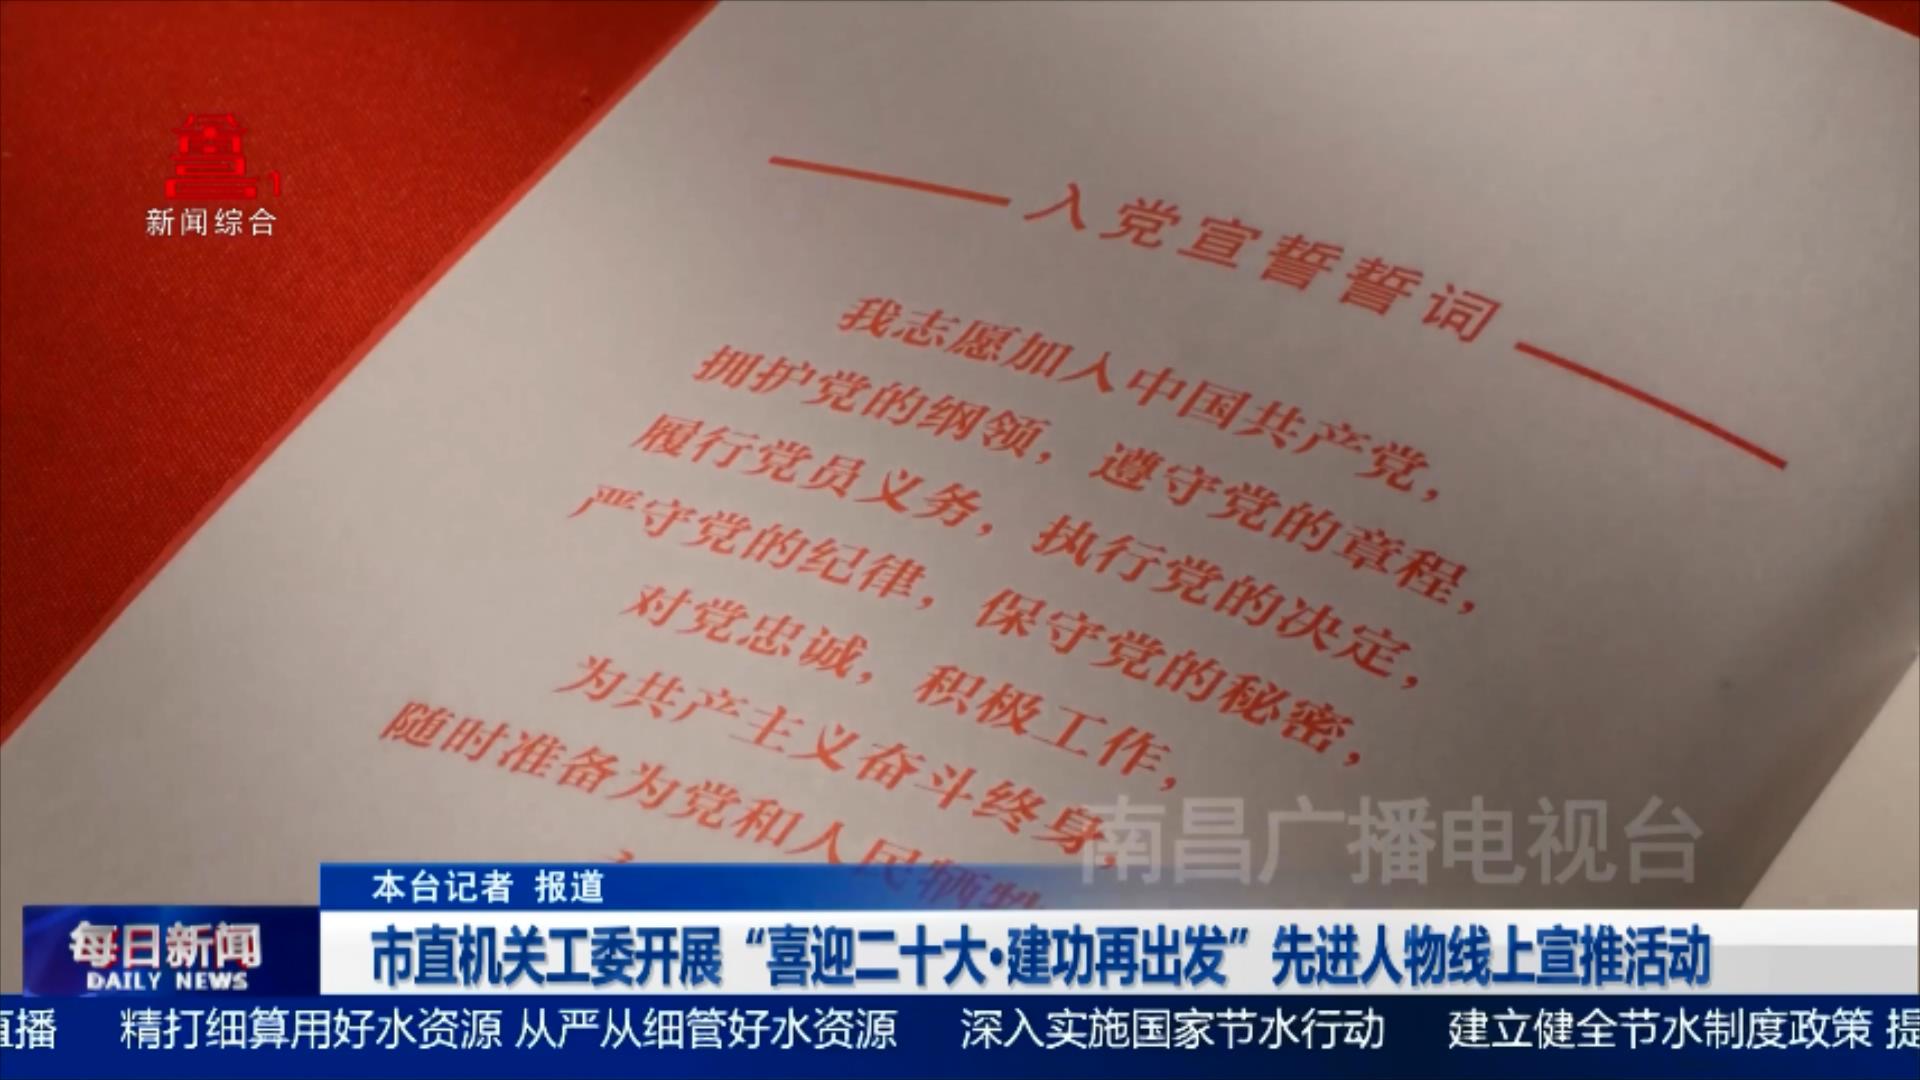 1
新闻综合
入党宣誓誓词
我志愿加入中国共产党，
拥护党的纲领，遵守党的章程，
履行党员义务，执行党的决定，
严守党的纪律，保守党的秘密，
对党忠诚，积极工作，
为共产主义奋斗终身，
随时准备为党和人民牺牲
南昌广播电视台
本台记者 报道
每日新闻
DAILY NEWS
市直机关工委开展“喜迎二十大·建功再出发”先进人物线上宣推活动
直播 精打细算用好水资源 从严从细管好水资源 深入实施国家节水行动 建立健全节水制度政策 提